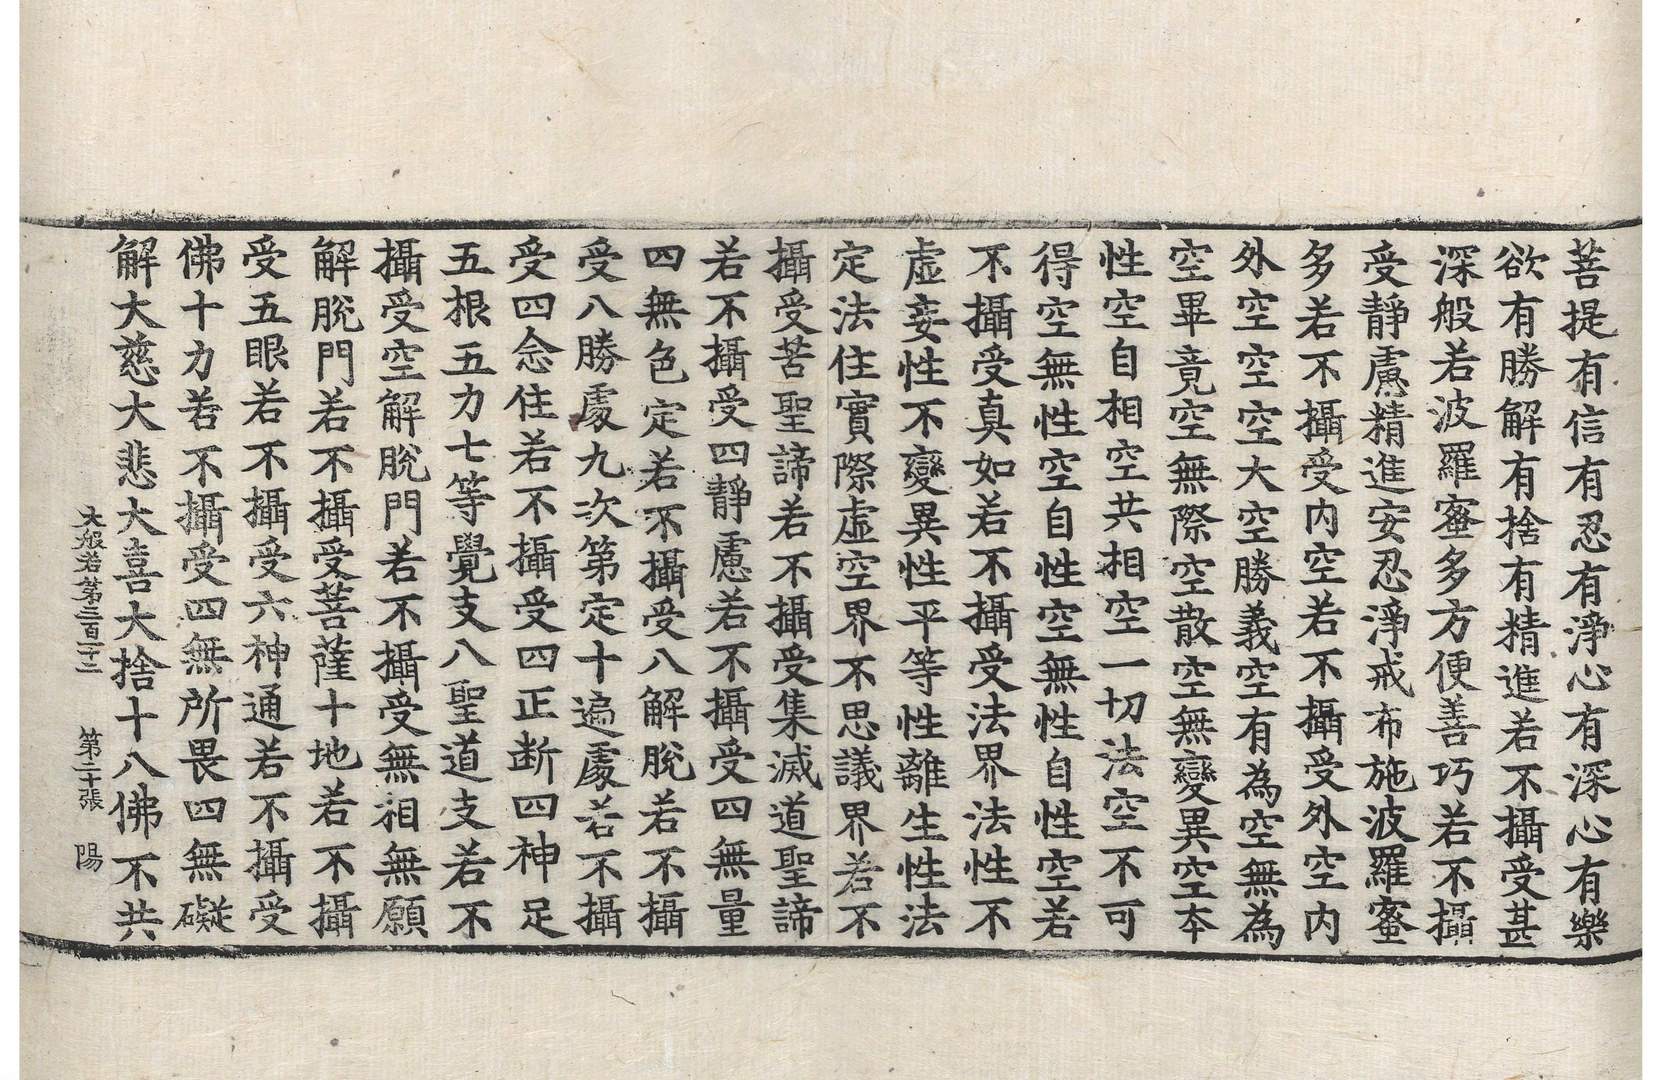 菩提有信有忍有淨心有深心有樂
欲有勝解有捨有精進若不攝受甚
深般若波羅蜜多方便善巧若不攝
受靜慮精進安忍淨戒布施波羅蜜
多若不攝受內空若不攝受外空內
外空空空大空勝義空有為空無為
空畢竟空無際空散空無變異空本
性空自相空共相空一切法空不可
得空無性空自性空無性自性空若
不攝受真如若不攝受法界法性不
虛妄性不變異性平等性離生性法
定法住實際虛空界不思議界若不
攝受苦聖諦若不攝受集滅道聖諦
若不攝受四靜慮若不攝受四無量
四無色定若不攝受八解脫若不攝
受八勝處九次第定十遍處若不攝
受四念住若不攝受四正斷四神足
五根五力七等覺支八聖道支若不
攝受空解脫門若不攝受無相無願
解脫門若不攝受菩薩十地若不攝
受五眼若不攝受六神通若不攝受
佛十力若不攝受四無所畏四無礙
解大慈大悲大喜大捨十八佛不共
大般若第三百十二 第二十張 陽